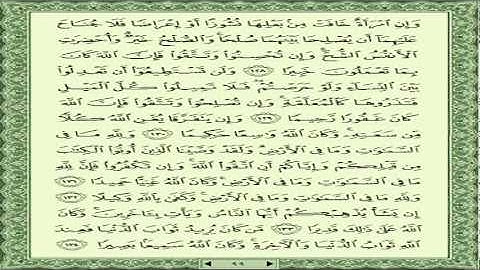 وَإِنِ ٱمْرَأَةٌ خَافَتْ مِنۢ بَعْلِهَا نُشُوزًا أَوْ إِعْرَاضًا فَلَا جُنَاحَ
عَلَيْهِمَآ أَن يُصْلِحَا بَيْنَهُمَا صُلْحًا ۚ وَٱلصُّلْحُ خَيْرٌ ۗ وَأُحْضِرَتِ
ٱلْأَنفُسُ ٱلشُّحَّ ۚ وَإِن تُحْسِنُوا۟ وَتَتَّقُوا۟ فَإِنَّ ٱللَّهَ كَانَ
بِمَا تَعْمَلُونَ خَبِيرًا ١٢٨ وَلَن تَسْتَطِيعُوٓا۟ أَن تَعْدِلُوا۟
بَيْنَ ٱلنِّسَآءِ وَلَوْ حَرَصْتُمْ ۖ فَلَا تَمِيلُوا۟ كُلَّ ٱلْمَيْلِ
فَتَذَرُوهَا كَٱلْمُعَلَّقَةِ ۚ وَإِن تُصْلِحُوا۟ وَتَتَّقُوا۟ فَإِنَّ ٱللَّهَ
كَانَ غَفُورًا رَّحِيمًا ١٢٩ وَإِن يَتَفَرَّقَا يُغْنِ ٱللَّهُ كُلًّا
مِّن سَعَتِهِۦ ۚ وَكَانَ ٱللَّهُ وَٰسِعًا حَكِيمًا ١٣٠ وَلِلَّهِ مَا فِى
ٱلسَّمَٰوَٰتِ وَمَا فِى ٱلْأَرْضِ ۗ وَلَقَدْ وَصَّيْنَا ٱلَّذِينَ أُوتُوا۟ ٱلْكِتَٰبَ
مِن قَبْلِكُمْ وَإِيَّاكُمْ أَنِ ٱتَّقُوا۟ ٱللَّهَ ۚ وَإِن تَكْفُرُوا۟ فَإِنَّ لِلَّهِ
مَا فِى ٱلسَّمَٰوَٰتِ وَمَا فِى ٱلْأَرْضِ ۚ وَكَانَ ٱللَّهُ غَنِيًّا حَمِيدًا ١٣١
وَلِلَّهِ مَا فِى ٱلسَّمَٰوَٰتِ وَمَا فِى ٱلْأَرْضِ ۚ وَكَفَىٰ بِٱللَّهِ وَكِيلًا ١٣٢
إِن يَشَأْ يُذْهِبْكُمْ أَيُّهَا ٱلنَّاسُ وَيَأْتِ بِـَٔاخَرِينَ ۚ وَكَانَ
ٱللَّهُ عَلَىٰ ذَٰلِكَ قَدِيرًا ١٣٣ مَّن كَانَ يُرِيدُ ثَوَابَ ٱلدُّنْيَا فَعِندَ
ٱللَّهِ ثَوَابُ ٱلدُّنْيَا وَٱلْـَٔاخِرَةِ ۚ وَكَانَ ٱللَّهُ سَمِيعًۢا بَصِيرًا ١٣٤
٩٩